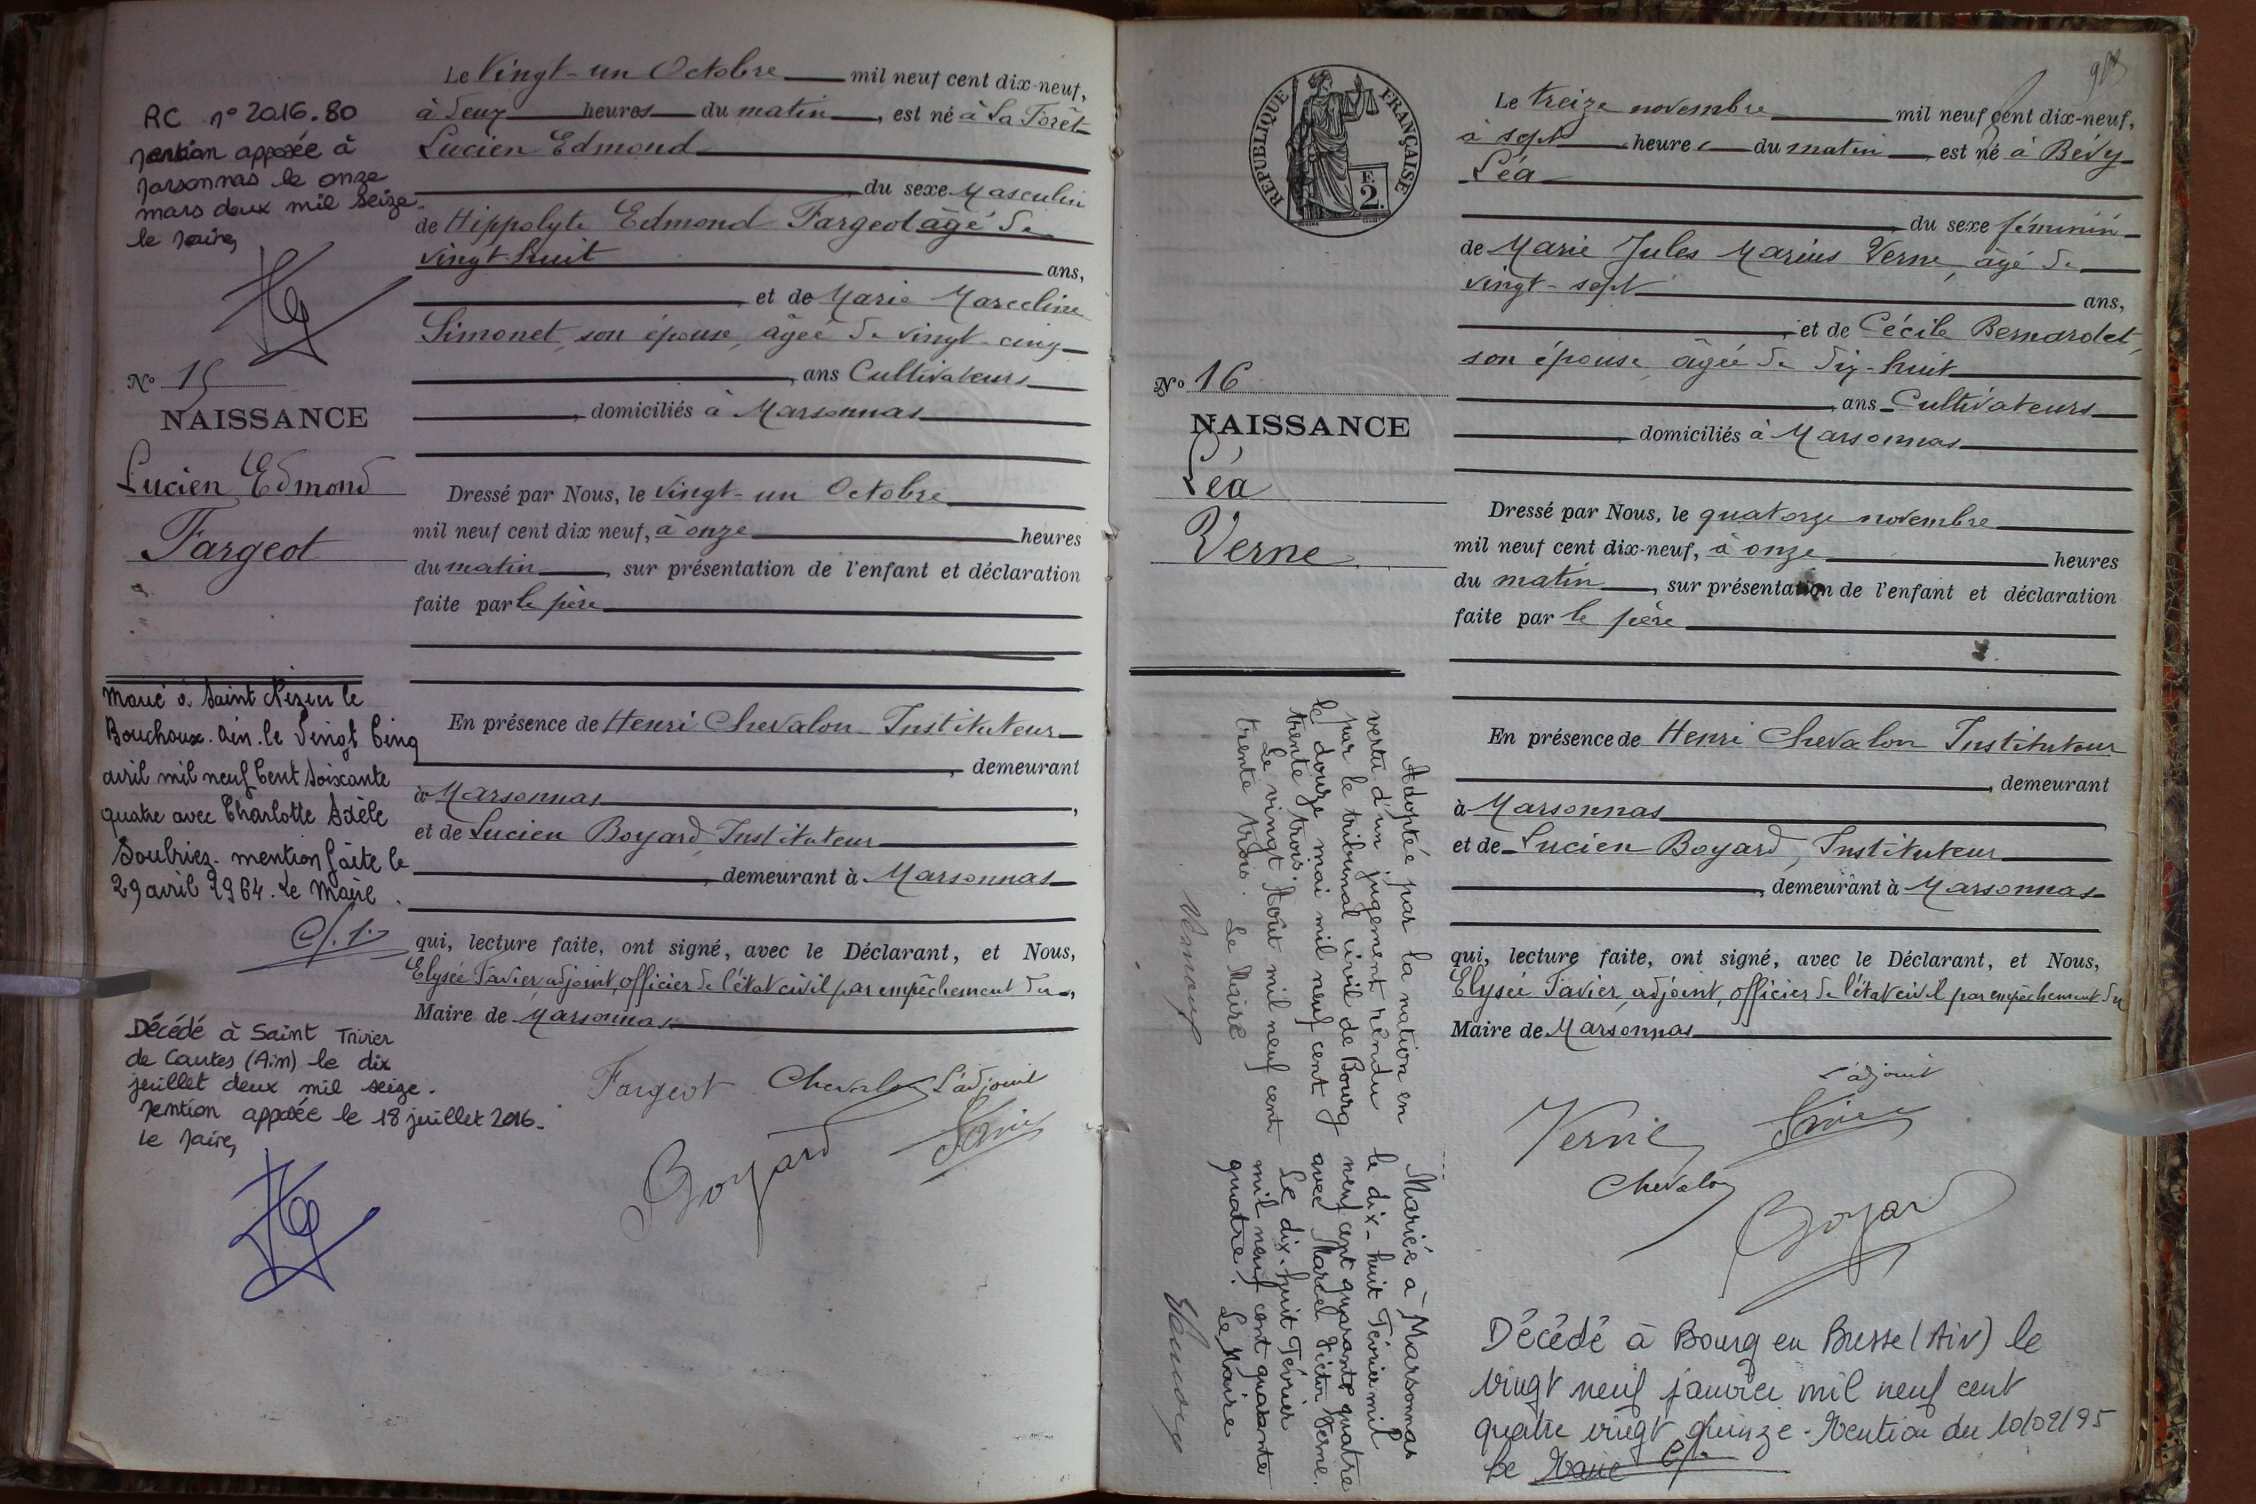 RC n° 2016.80
mention apposée à
Marsonnas le onze
mars deux mil seize.
le Maire,
N° 15
NAISSANCE
Lucien Edmond
Fargeot
Marié à Saint Nizier le
Bouchoux. Ain. le Vingt Cinq
avril mil neuf Cent Soixante
quatre avec Charlotte Adèle
Soubriez. mention faite le
29 avril 1964. Le Maire.
Décédé à Saint Trivier
de Courtes (Ain) le dix
juillet deux mil seize.
Mention apposée le 18 juillet 2016.
Le Maire,
Le Vingt-un Octobre mil neuf cent dix-neuf,
à deux heures du matin, est né à La Forêt
Lucien Edmond
du sexe Masculin
de Hippolyte Edmond Fargeot âgé de
vingt-huit ans,
et de Marie Marceline
Simonet, son épouse, âgée de vingt-cinq
, ans Cultivateurs
, domiciliés à Marsonnas
Dressé par Nous, le vingt-un Octobre
mil neuf cent dix neuf, à onze heures
du matin, sur présentation de l'enfant et déclaration
faite par le père
En présence de Henri Chevalon Instituteur
, demeurant
à Marsonnas,
et de Lucien Boyard, Instituteur
, demeurant à Marsonnas
qui, lecture faite, ont signé, avec le Déclarant, et Nous,
Elysée Favier adjoint, officier de l'état civil par empêchement du,
Maire de Marsonnas
Fargeot Chevalon L'adjoint
Boyard Favier
903
REPUBLIQUE FRANÇAISE
E
2.
N° 16
NAISSANCE
Léa
Verne
Adoptée par la nation en
vertu d'un jugement rendu
par le tribunal civil de Bourg
le douze mai mil neuf cent
trente trois.
Le vingt Août mil neuf cent
trente trois. Le Maire
Mariée à Marsonnas
le dix-huit Février mil
neuf cent quarante quatre
avec Marcel Victor Verne.
Le dix-huit Février
mil neuf cent quarante
quatre. Le Maire
Le treize novembre mil neuf cent dix-neuf,
à sept heures du matin, est né à Bévy
Léa
du sexe féminin
de Marie Jules Marius Verne, âgé de
vingt-sept ans,
, et de Cécile Bernardet,
son épouse, âgée de dix-huit
, ans Cultivateurs
, domiciliés à Marsonnas
Dressé par Nous, le quatorze novembre
mil neuf cent dix-neuf, à onze heures
du matin, sur présentation de l'enfant et déclaration
faite par le père
En présence de Henri Chevalon Instituteur
, demeurant
à Marsonnas
et de Lucien Boyard, Instituteur
, demeurant à Marsonnas
qui, lecture faite, ont signé, avec le Déclarant, et Nous,
Elysée Favier, adjoint, officier de l'état civil par empêchement du
Maire de Marsonnas
L'adjoint
Verne Favier
Chevalon
Boyard
Décédé à Bourg en Bresse (Ain) le
vingt neuf janvier mil neuf cent
quatre vingt quinze - Mention du 10/02/95
Le Maire